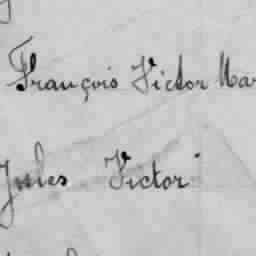 François Victor Mar
Jules Victor